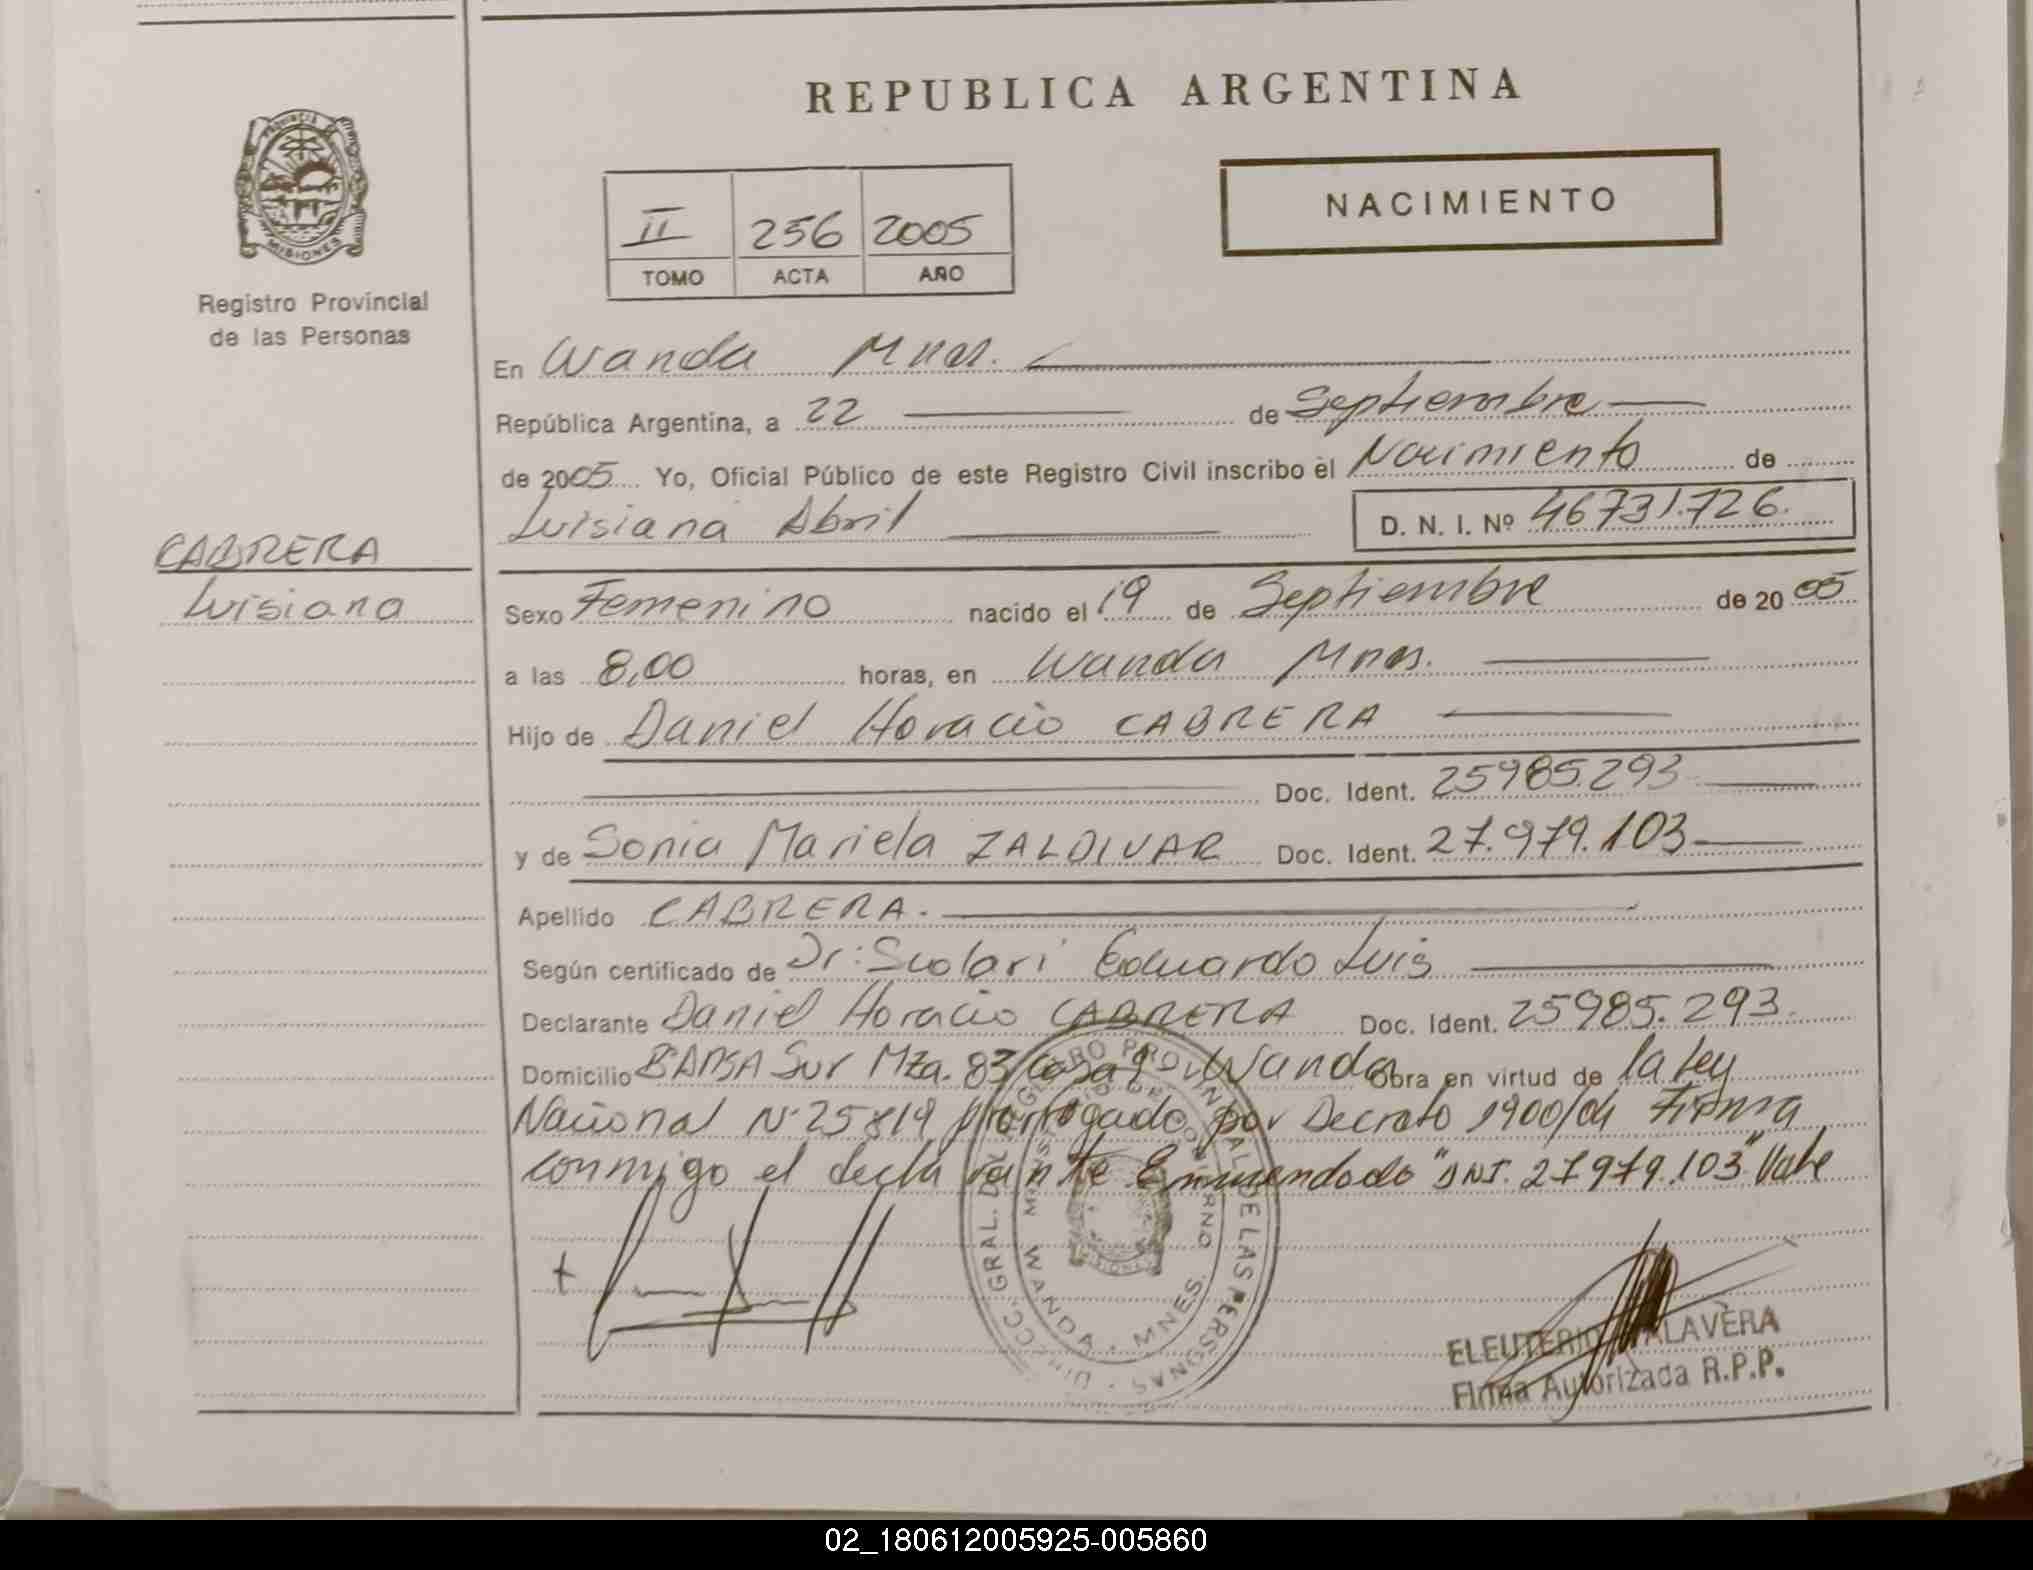 REPUBLICA ARGENTINA
PROVINCIA DE
MISIONES
Registro Provincial
de las Personas
II 256 2005
TOMO ACTA AÑO
NACIMIENTO
En Wanda Mnes.
República Argentina, a 22 de Septiembre
de 2005 Yo, Oficial Público de este Registro Civil inscribo el Nacimiento de
Luisiana Abril D. N. I. Nº 46731.726.
CABRERA
Luisiana
Sexo Femenino nacido el 19 de Septiembre de 2005
a las 8,00 horas, en Wanda Mnes.
Hijo de Daniel Horacio CABRERA
Doc. Ident. 25985.293
y de Sonia Mariela ZALDIVAR Doc. Ident. 27.979.103
Apellido CABRERA.
Según certificado de Dr. Scolari Eduardo Luis
Declarante Daniel Horacio CABRERA Doc. Ident. 25985.293.
Domicilio Bº ABSA Sur Mza. 83 casa 9 Wanda Obra en virtud de la Ley
Nacional Nº 25819 prorrogado por Decreto 1900/04 Firma
conmigo el declarante Enmendado "DNI. 27979.103" Vale
GRAL. DEL REGISTRO PROVINCIAL DE LAS PERSONAS
MINISTERIO DE GOBIERNO
WANDA - MNES.
ELEUTERIO TALAVERA
Firma Autorizada R.P.P.
02_180612005925-005860